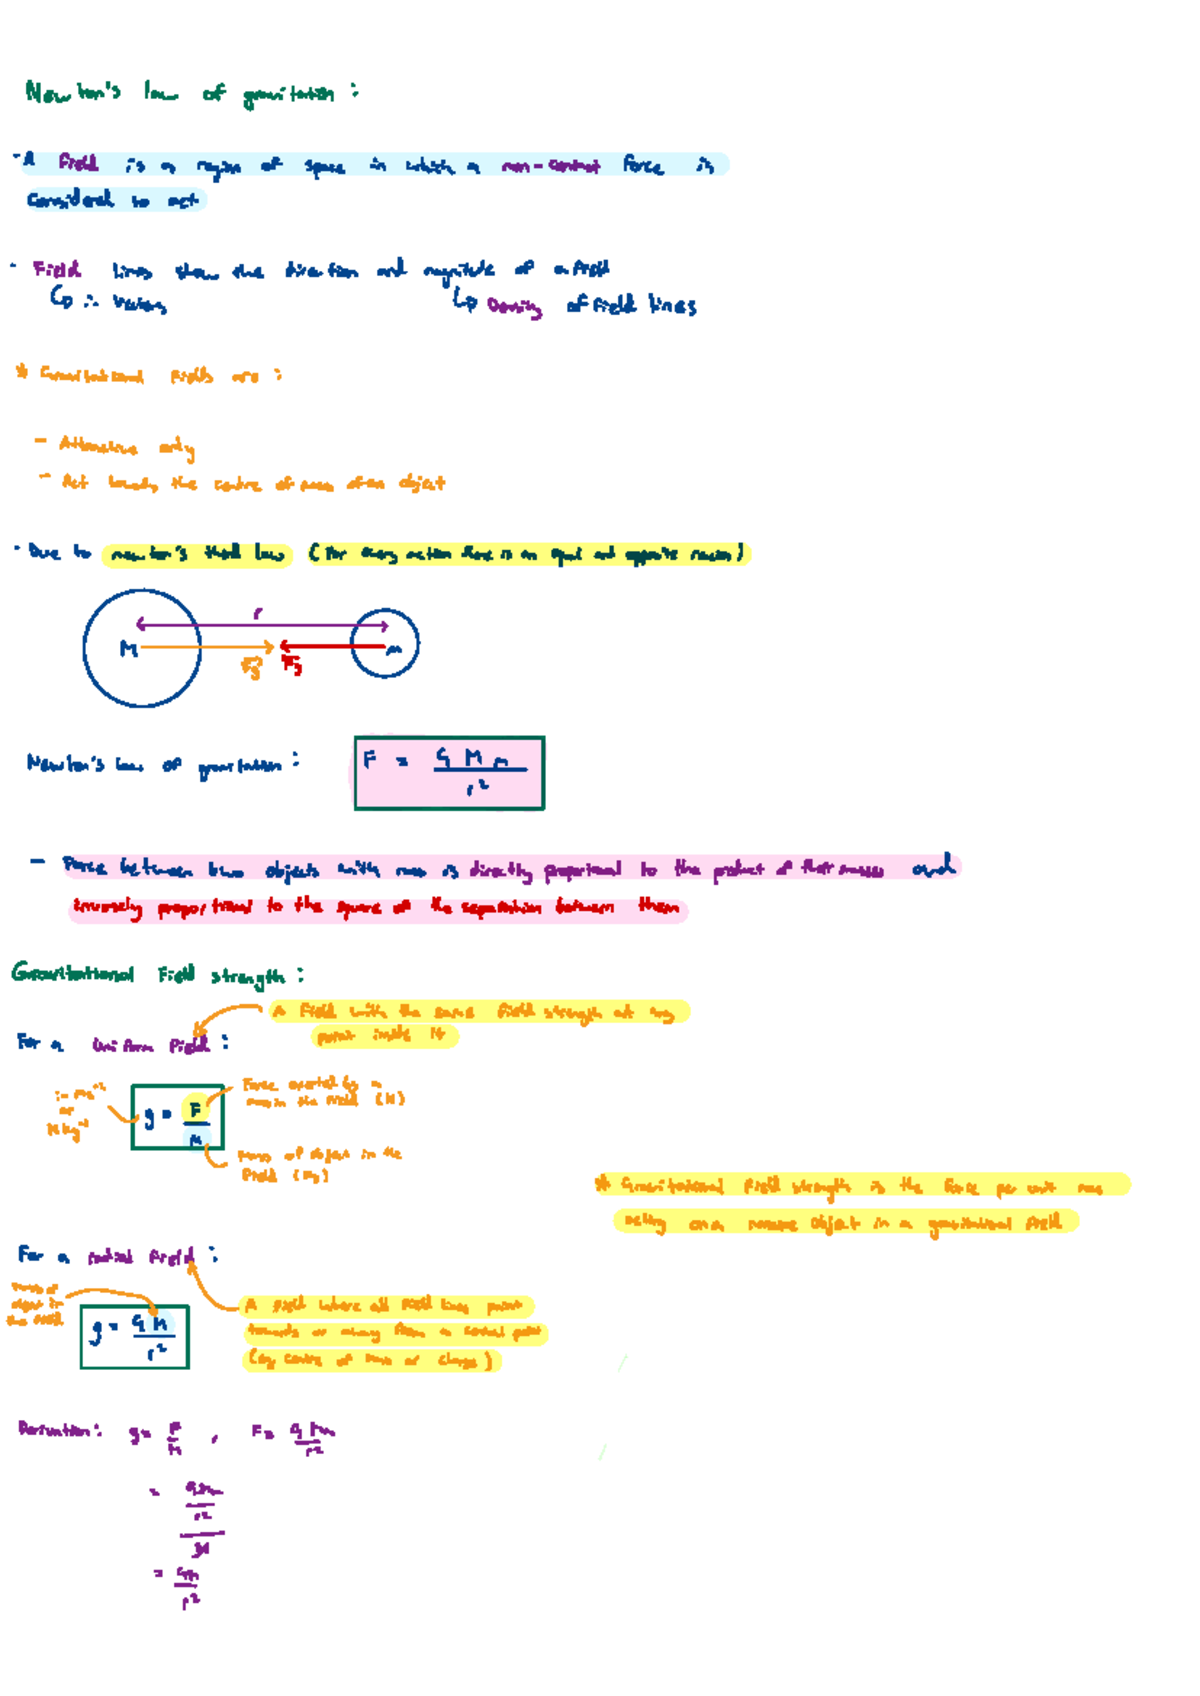 Newton's law of gravitation :
- A field is a region of space in which a non-contact force is
considered to act
- Field lines show the direction and magnitude of a field
↳ ∴ vectors ↳ Density of field lines
* Gravitational fields are :
- Attractive only
- Act towards the centre of mass of an object
- Due to newton's third law (for every action there is an equal and opposite reaction)
r
M Fg Fg m
Newton's law of gravitation : F = G M m / r²
- Force between two objects with mass is directly proportional to the product of their masses and
inversely proportional to the square of the separation between them
Gravitational Field strength :
A field with the same field strength at any
point inside it
For a uniform field :
Force exerted by a
mass in the field (N)
in ms⁻²
or
Nkg⁻¹
g = F / m
mass of object in the
field (kg)
* Gravitational field strength is the force per unit mass
acting on a massive object in a gravitational field
For a radial field :
mass of
object in
the field
g = G M / r²
A field where all field lines point
towards or away from a central point
(eg centre of mass or charge)
Derivation : g = F / m , F = G M m / r²
= G M m / r² / m
= G M / r²